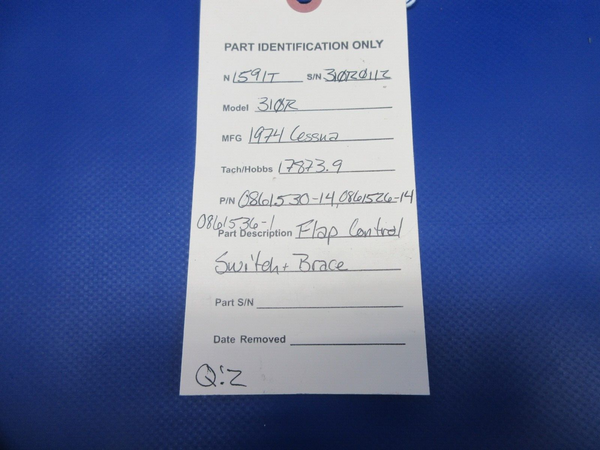 PART IDENTIFICATION ONLY
N 1591T S/N 310R0112
Model 310R
MFG 1974 Cessna
Tach/Hobbs 17873.9
P/N 0861530-14, 0861526-14
0861536-1
Part Description Flap Control
Switch + Brace
Part S/N
Date Removed
Q:2